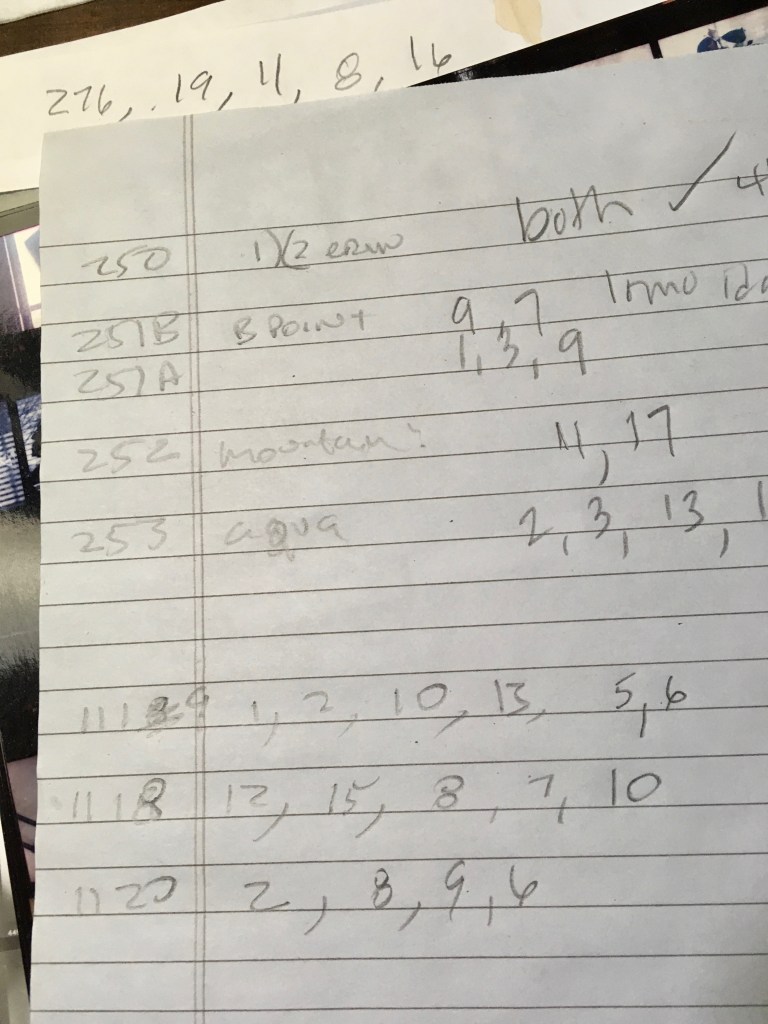 276, 19, 11, 8, 16
both ✓
250 1)(2
251B B POINT 9, 7
251A 1, 3, 9
252 mountain 11, 17
253 aqua 2, 3, 13, 1
1119 1, 2, 10, 13, 5, 6
1118 12, 15, 8, 7, 10
1120 2, 8, 9, 6